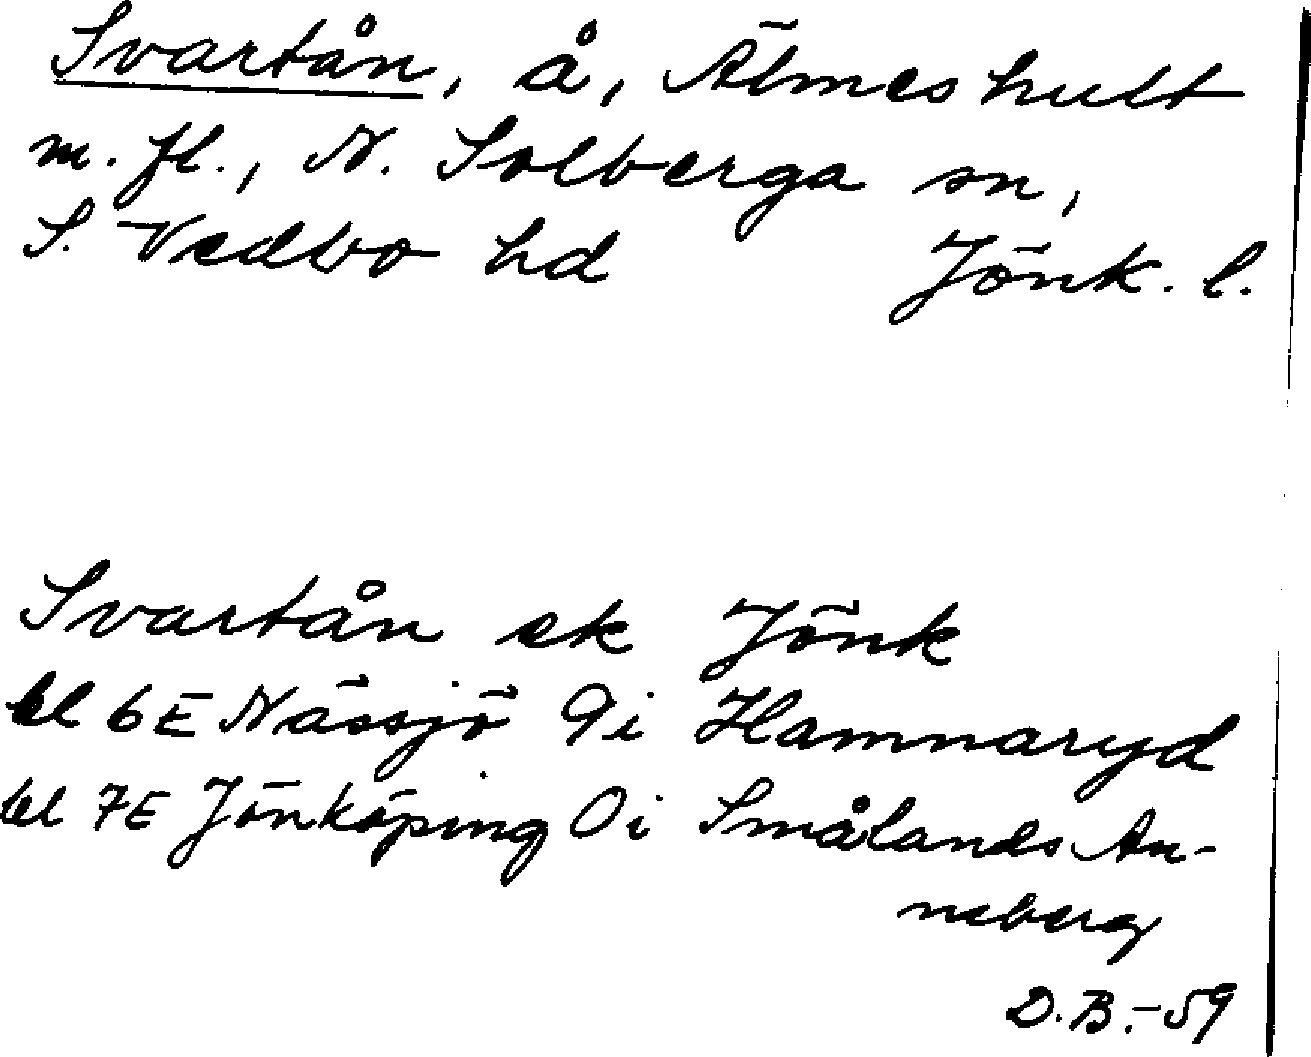 Svartån, å, Älmeshult
m. fl., N. Solberga sn,
S. Vedbo hd Jönk. l.
Svartån ek Jönk
bl 6E Nässjö 9i Hamnaryd
bl 7E Jönköping 0i Smålands An-
neberg
D.B.-59